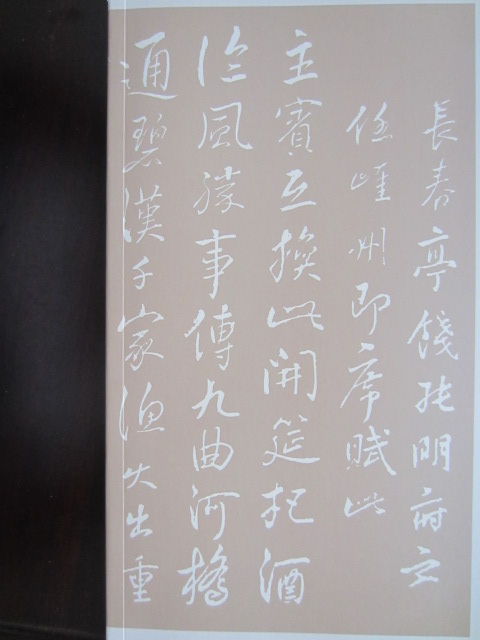 長春亭餞明府之
任睢州即席賦此
主賓互換此開筵把酒
臨風勝事傳九曲河橋
通碧漢千家漁火出重